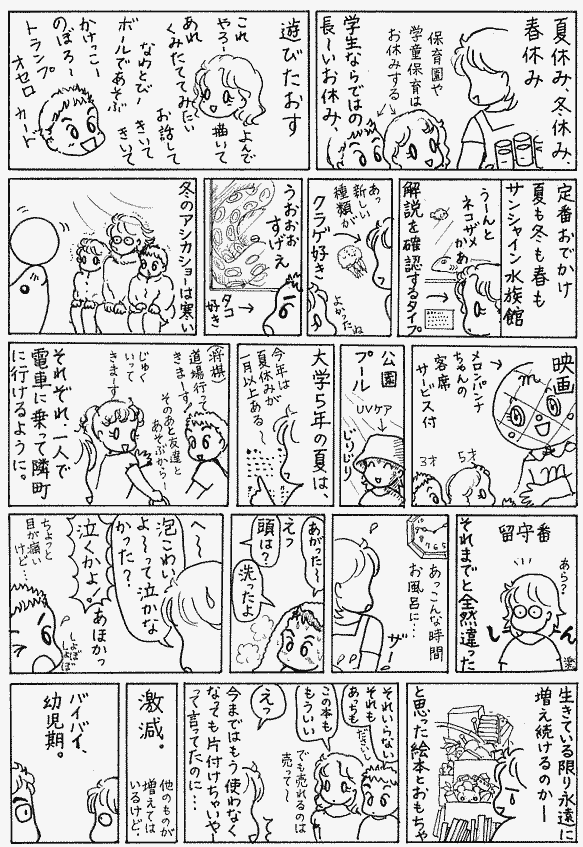 夏休み、冬休み、
春休み
保育園や
学童保育は
お休みする
学生ならではの
長〜いお休み、
遊びたおす
これ
やろー
よんで
描いて
あれ
くみたててみたい
お話して
なわとびー
きいて
きいて
ボールであそぶ
かけっこー
のぼろ〜
トランプ
オセロ
カード
定番おでかけ
夏も冬も春も
サンシャイン水族館
うーんと
ネコザメ
かあ
解説を確認するタイプ
あっ
新しい
種類が
よかったね
クラゲ好き
うおぉぉ
すげえ
タコ
好き
冬のアシカショーは寒い
映画
メロンパンナ
ちゃんの
客席
サービス付
5才
3才
公園
プール
UVケア
じりじり
大学5年の夏は、
今年は
夏休みが
一月以上ある〜
将棋
道場行って
きまーす!
そのあと友達と
あそぶから!
じゅく
いって
きまーす
それぞれ、一人で
電車に乗って隣町
に行けるように。
留守番
あら?
しーん
それまでと全然違った
あっこんな時間
お風呂に…
ザー
あがった〜
えっ
頭は?
洗ったよ
へ〜
泡こわい
よ〜って泣かな
かった?
あほかっ
泣くかよ。
ちょっと
目が痛い
けど…
しょぼ
しょぼ
生きている限り永遠に
増え続けるのかー
と思った絵本とおもちゃ
それいらない
それも
あっちも
だい〜
この本も
もういい
でも売れるのは
売って〜
えっ
今まではもう使わなく
なっても片付けちゃいやー
って言ってたのに…
激減。
他のものが
増えては
いるけど、
バイバイ、
幼児期。